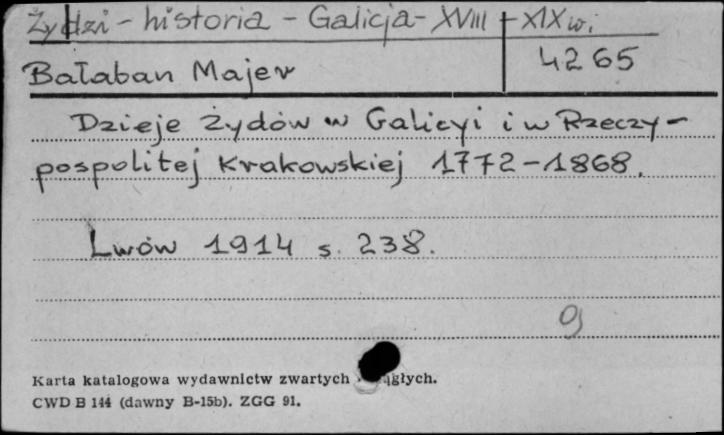 Żydzi - historia - Galicja - XVIII - XIX w.
Bałaban Majer
4265
Dzieje Żydów w Galicyi i w Rzeczy-
pospolitej Krakowskiej 1772-1868.
Lwów 1914 s. 238.
Karta katalogowa wydawnictw zwartych
CWD B 144 (dawny B-15b). ZGG 91.